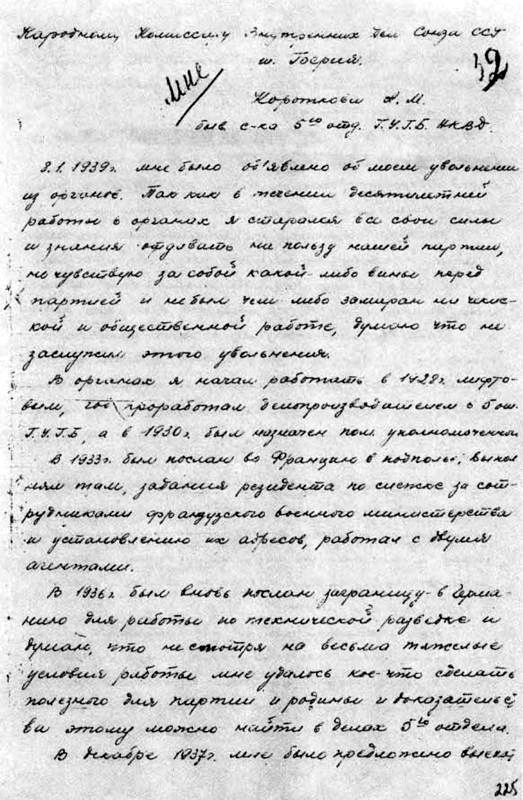 Народному Комиссару Внутренних Дел Союза ССР
т. Берия.
мне
52
Короткова А. М.
быв с-ка 5го отд. Г.У.Г.Б. НКВД.
8.1.1939г. мне было об'явлено об моем увольнении
из органов. Так как в течении десятилетней
работы в органах я старался все свои силы
и знания отдавать на пользу нашей партии,
не чувствую за собой какой-либо вины перед
партией и не был чем либо замаран на чекис-
кой и общественной работе, думаю что не
заслужил этого увольнения.
В органах я начал работать в 1928г. лифто-
вым, проработал делопроизводителем в 5 от.
Г.У.Г.Б, а в 1930г. был назначен пом. уполномоченного
В 1933г. был послан во Францию в подполье, выпол-
нял там, задания резидента по слежке за сот-
рудниками французского военного министерства
и установлению их адресов, работал с двумя
агентами.
В 1936г. был вновь послан заграницу - в Герма-
нию для работы по технической разведке и
думаю, что несмотря на весьма тяжелые
условия работы мне удалось кое-что сделать
полезного для партии и родины и доказательс
ва этому можно найти в делах 5го отдела.
В декабре 1937г. мне было предложено выехать
225